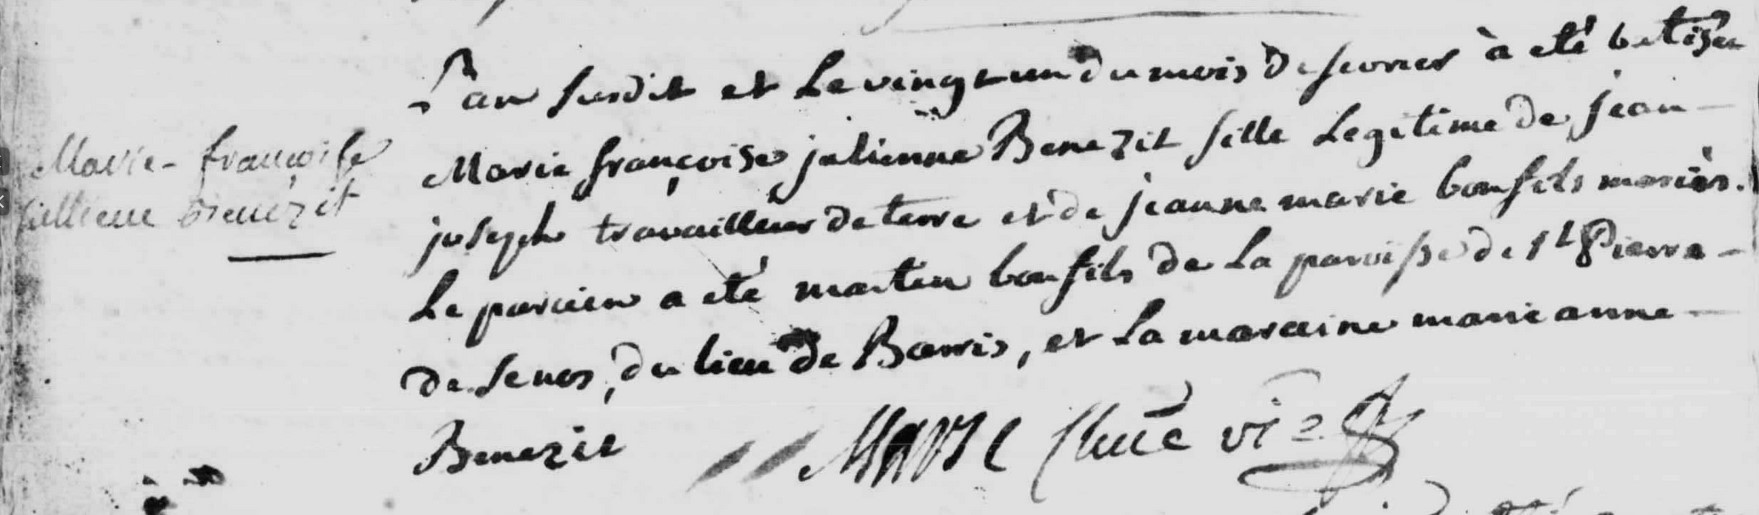 Marie françoise
julliene Benezit
L'an susdit et Le vingt un du mois de fevrier à eté batisée
Marie françoise julienne Benezit fille Legitime de jean
joseph travailleur de terre et de jeanne marie bonfils mariès.
Le parrein a eté martin bonfils de La paroisse de St Pierre
de Senos, du lieu de Barris, et La maraine marie anne
Benezit Curé